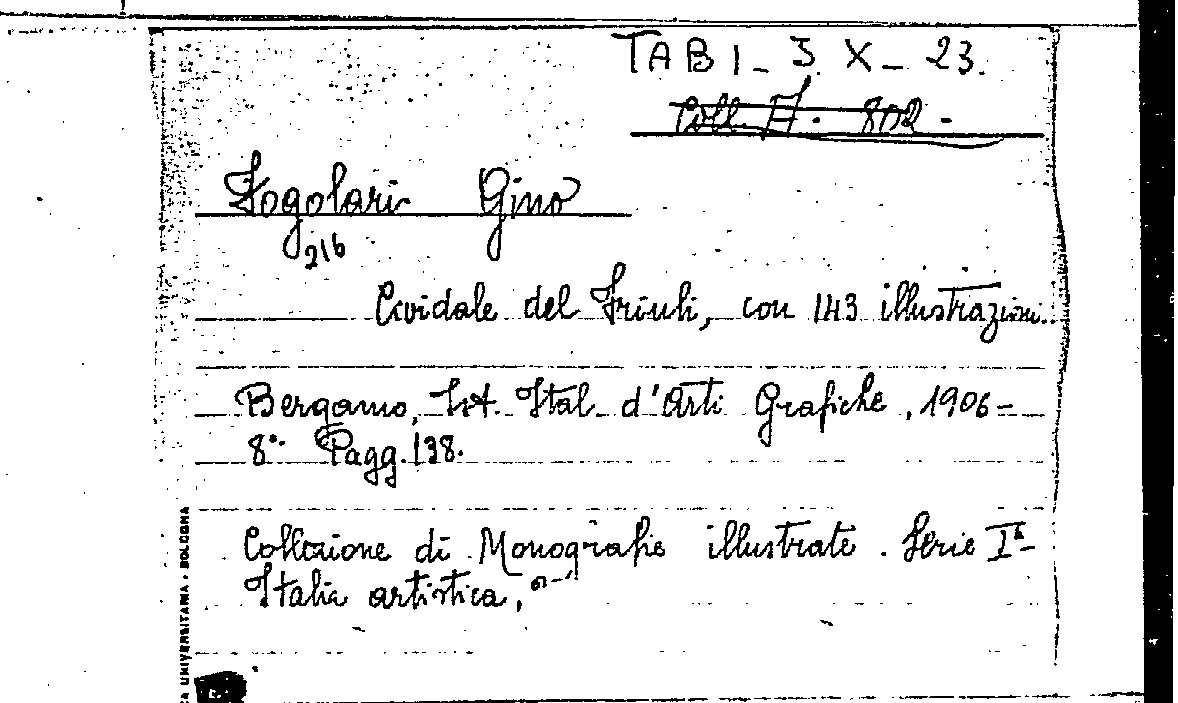 TAB I - J. X - 23.
Coll. A. 802.
Fogolari Gino
216
Cividale del Friuli, con 143 illustrazioni.
Bergamo, Ist. Ital. d'Arti Grafiche, 1906-
8° Pagg. 138.
Collezione di Monografie illustrate. Serie Iª-
Italia artistica,
UNIVERSITARIA - BOLOGNA